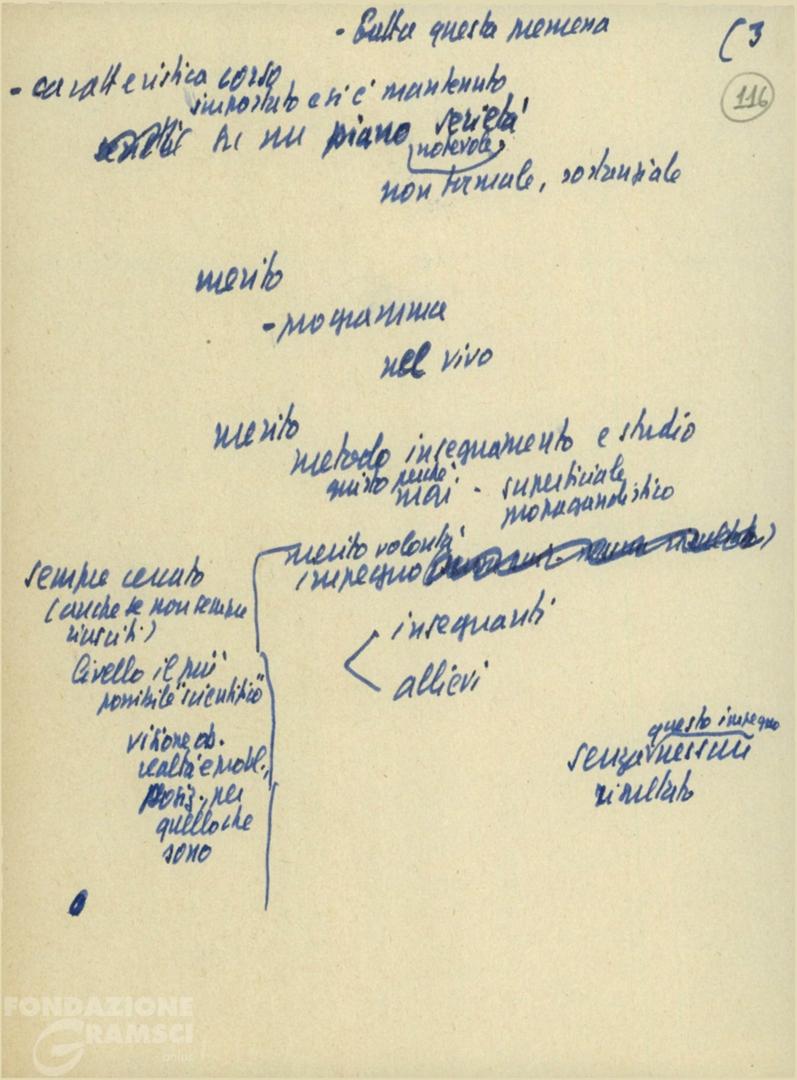 - Tutta questa premessa
(3
116
- caratteristica corso
impostato e si è mantenuto
su un piano serietà
notevole,
non formale, sostanziale
merito
- programma
nel vivo
merito
metodo insegnamento e studio
giusto perché
mai - superficiale
propagandistico
merito volontà
impegno
insegnanti
allievi
sempre cercato
(anche se non sempre
riusciti)
livello il più
possibile "scientifico"
visione ob.
realtà e probl.,
posiz., per
quello che
sono
questo impegno
senza nessun
risultato
FONDAZIONE
GRAMSCI
onlus